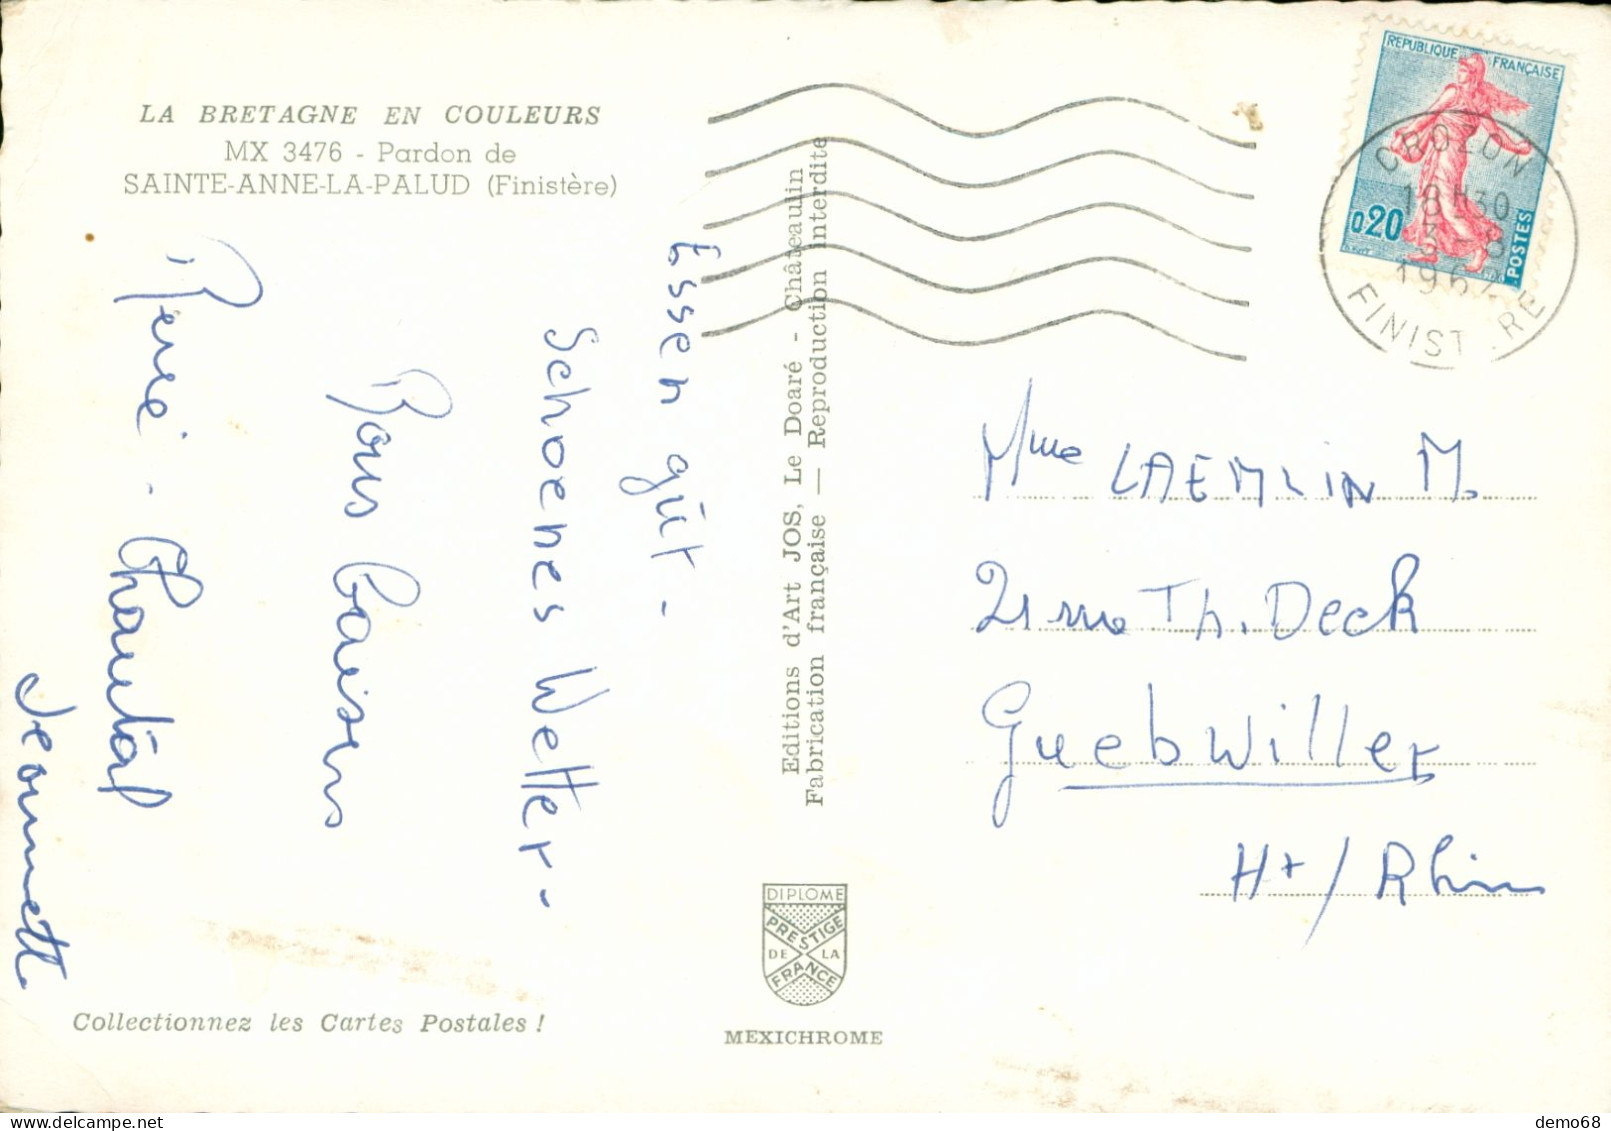 LA BRETAGNE EN COULEURS
MX 3476 - Pardon de
SAINTE-ANNE-LA-PALUD (Finistère)
Essen güt -
Schoenes Wetter -
Bons baisers
René - Chantal
Jeannette
Collectionnez les Cartes Postales !
Editions d'Art JOS, Le Doaré - Châteaulin
Fabrication française — Reproduction interdite
DIPLOME
PRESTIGE
DE LA
FRANCE
MEXICHROME
REPUBLIQUE FRANÇAISE
0,20
POSTES
CROZON
18H30
3-8
FINIST RE
Mme LAEMLIN M.
21 rue Th. Deck
Guebwiller
Ht / Rhin
demo68